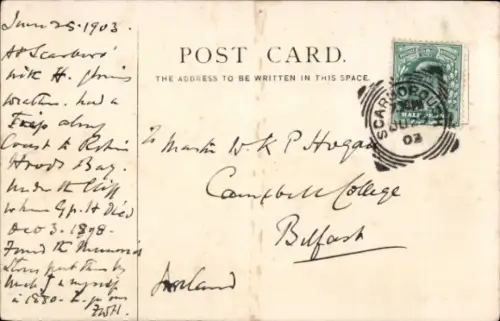 June 25. 1903.
At Scarboro'
with H. glorious
weather. had a
Trip along
Coast to Robin
Hoods Bay.
Under the Cliff
where Gp. H died
Dec 3. 1898.
Found the Memorial
Stone put there by
& myself
in 1880-
FWH.
POST CARD.
THE ADDRESS TO BE WRITTEN IN THIS SPACE.
HALF
SCARBOROUGH
03
To Master W K P Hogan
Campbell College
Belfast
Ireland